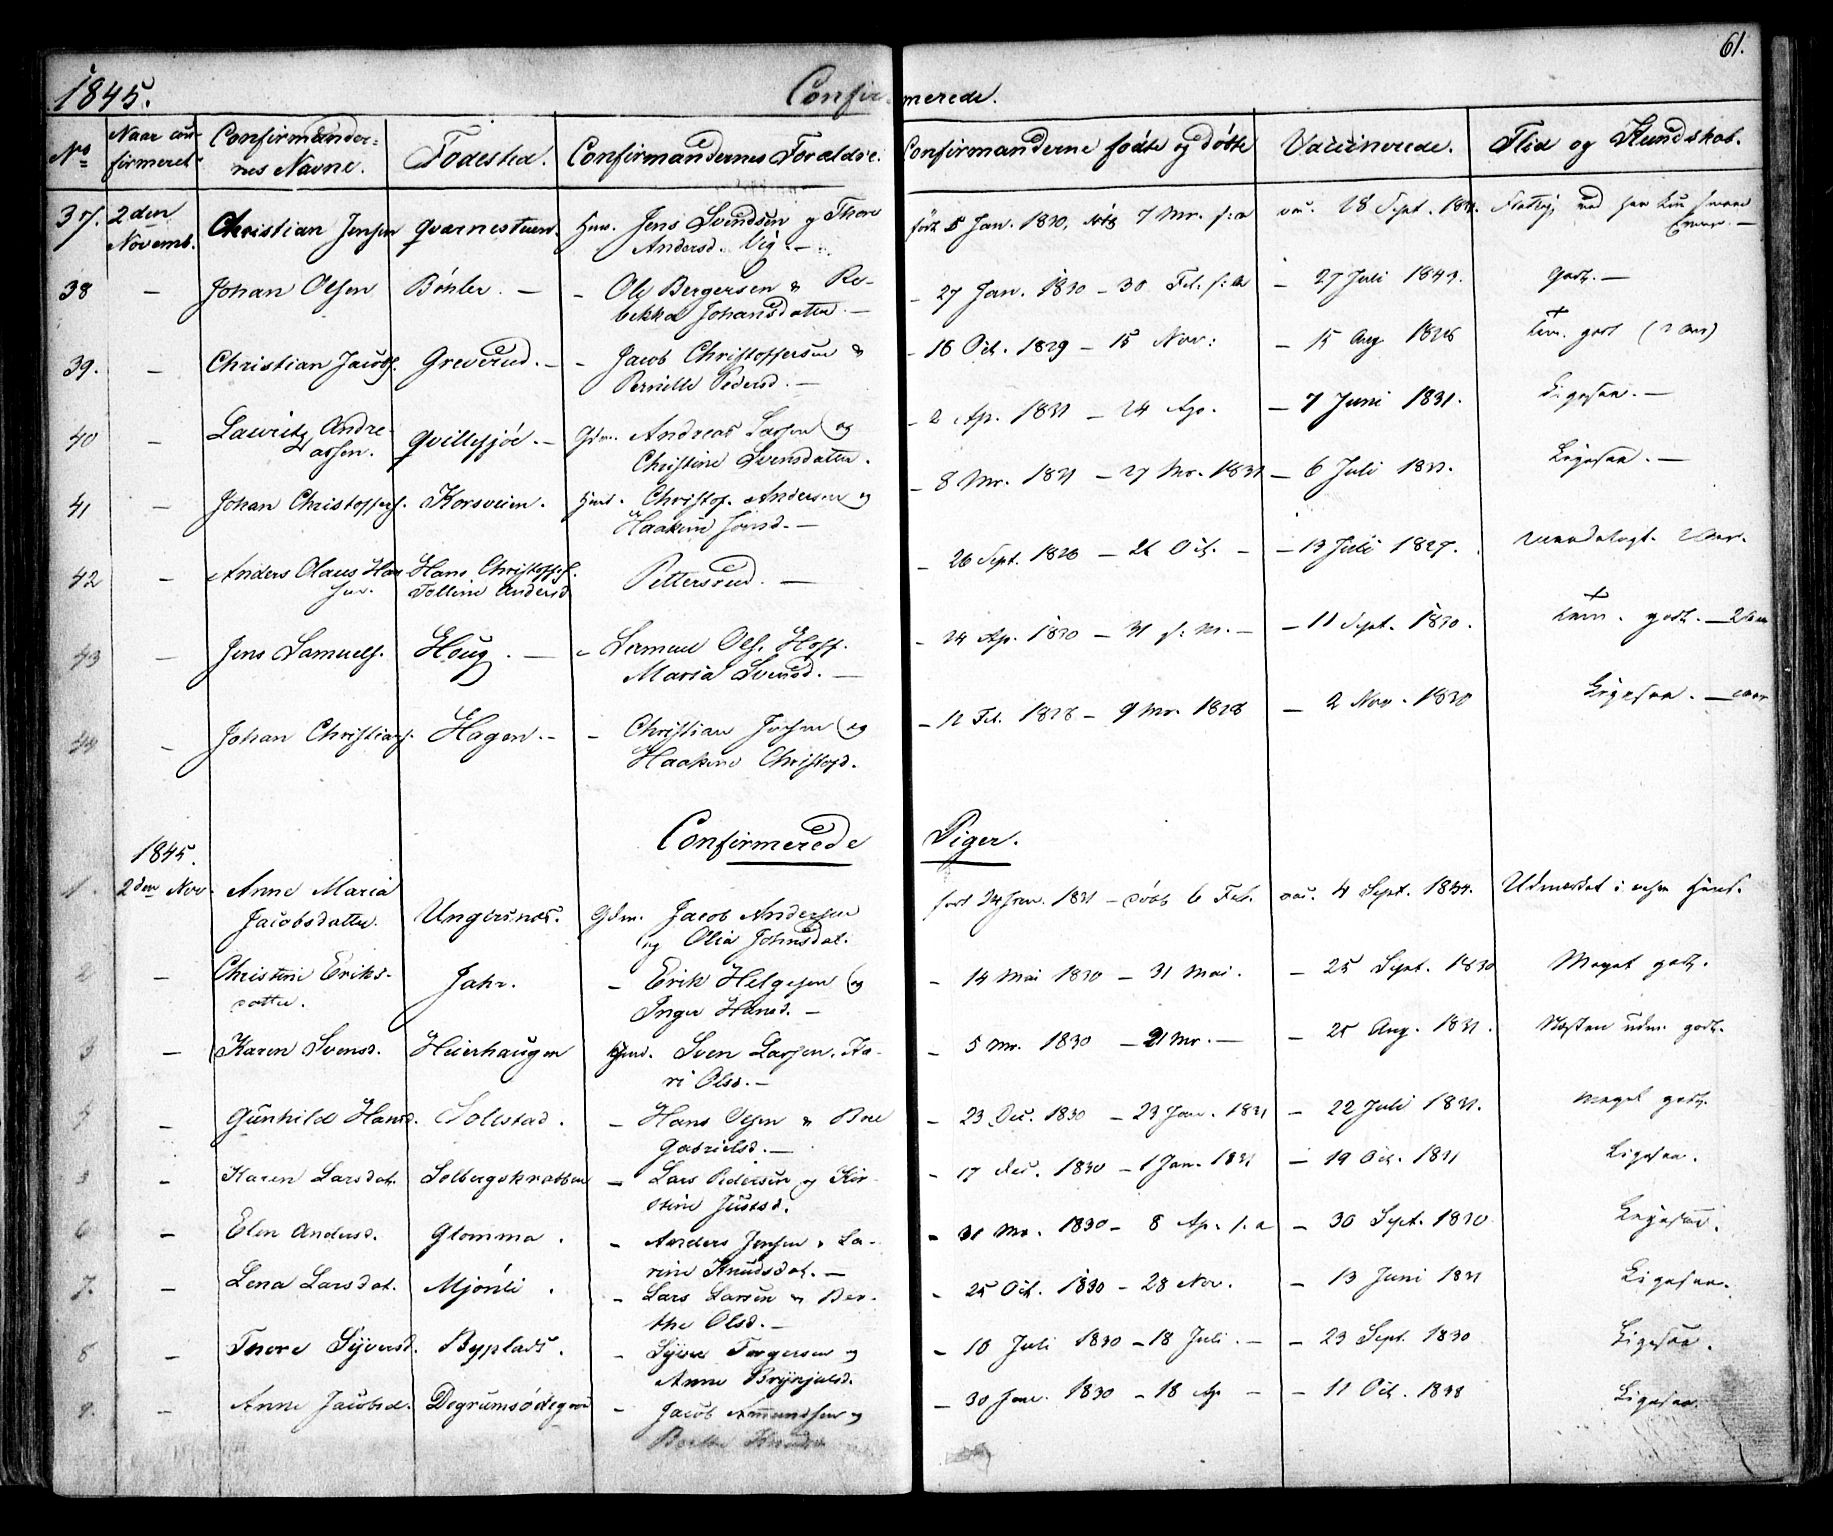 61.
1845. Confirmerede.
No Naar confirmeret Confirmandernes Navne. Fødested. Confirmandernes Forældre. Confirmanderne fødte og døbte Vaccinerede. Flid og Kundskab.
37. 2den Novemb. Christian Jensen Qvarnestuen. Hmd. Jens Svendsen og Thore Andersd. født 5 Jan. 1830, døbt 7 Mr. s: a vac. 18 Sept.
38 — Johan Olsen Bøhler. — — Ole Bergersen & Rebekka Johansdatter. — — 27 Jan. 1830 — 30 Feb. s: a — 27 Juli 1843. Godt. —
39. — Christian Jacobs. Greverud. — — Jacob Christoffersen & Pernille Pedersd. — — 18 Oct. 1829 — 15 Nov: — 15 Aug. godt
40 — Lauritz Andreassen. Qvillesjøe. — Gdm. Andreas Larsen og Christine Svensdatter. — 2 Ap. 1831 — 24 Apr. — 7 Juni 1831. Ligesaa. —
41 — Johan Christoffers. Korsveien. Hmd. Christof. Andersen og Haakine Jonsd. — — 8 Mr. 1831 — 27 Mr. 1831 — 6 Juli 1831. Ligesaa. —
42 — Anders Olaus Hansen. Hans Christoffs. Tolline Andersd Pettersrud. — — 26 Sept. 1828 — 26 Oct. — — 13 Juli 1829.
43 — Jens Samuels. Houg. — — Ols. Hoff. Maria Svensd. — — 24 Ap. 1830 — 31 — 11 Sept. 1830. godt. —
44 — Johan Christians. Hagen. — — Christian og Haakine Christofd. — 12 Feb. 1828 — 9 Mr. 1828 — 2 Nov. 1830 Ligesaa. —
Confirmerede Piger.
1845.
1. 2den Nov. Anne Maria Jacobsdatter. Ungersnæs. Gdm. Jacob Andersen og Olia Johnsdat. født 24 Jan. 1831 — døbt 6 Feb. vac. 4 Sept. 1834. Udmærket i
2 — Christine Eriksdatter. Jahr. — Erik Helgesen og Inger Hansd. — — 14 Mai 1830 — 31 Mai. — 25 Sept. 1830 Meget godt.
3 — Karen Svensd. Heierhaugen Hmd. Sven Larsen. Kari Olsd. — — 5 Mr. 1830 — 21 Mr. — — 25 Aug. 1831. Næsten udm. godt.
— Gunhild Hansd. Solestad. — Hans Olsen & Boel Gabrielsd. — — 23 Dec. 1830 — 23 Jan. 1831 — 22 Juli 1831. Meget godt.
— Karen Larsdat. Solbergskrabben — Lars Pedersen og Kirstine Justsd. — 17 Dec. 1830 — 1 Jan. 1831 — 19 Oct. 1831 Ligesaa.
6 — Elen Andersd. Glomma. — Anders Jensen & Larine Knudsdat. — — 31 Mr. 1830 — 8 Ap. s. a — 30 Sept. 1830 Ligesaa.
7. — Lena Larsdat. Mjønli. — Lars Larsen & Berthe Olsd. — — 25 Oct. 1830 — 28 Nov. — 13 Juni 1831 Ligesaa.
8 — Thore Syversd. Byplads. — Syver Torgersen og Anne Brynjulsd. — 10 Juli 1830 — 18 Juli. — — 23 Sept. 1830 Ligesaa.
— Anne Jacobsd. — Jacob Amundsen og — 30 Jan. 1830 — 18 Ap — — 11 Oct. Ligesaa.